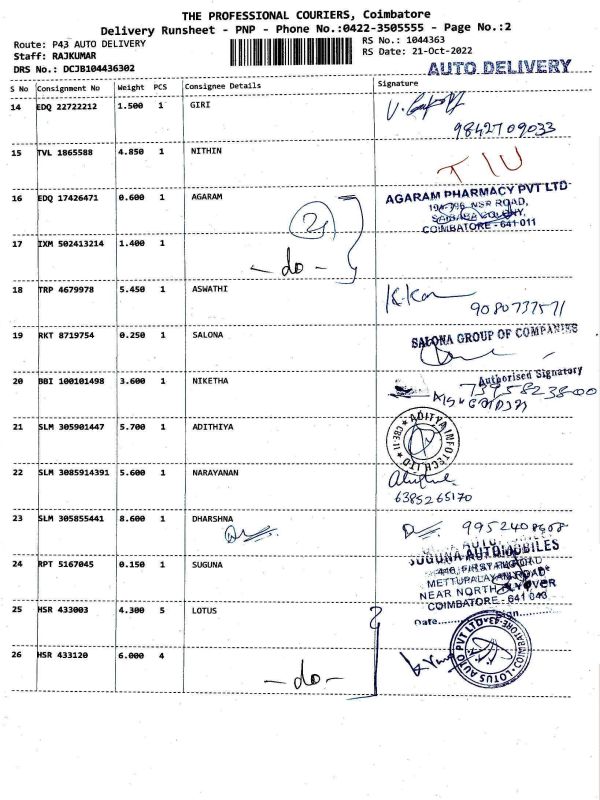 THE PROFESSIONAL COURIERS, Coimbatore
Delivery Runsheet - PNP - Phone No.:0422-3505555 - Page No.:2
Route: P43 AUTO DELIVERY RS No.: 1044363
Staff: RAJKUMAR RS Date: 21-Oct-2022
DRS No.: DCJB104436302 AUTO DELIVERY
S No Consignment No Weight PCS Consignee Details Signature
14 EDQ 22722212 1.500 1 GIRI
9842709033
15 TVL 1865588 4.850 1 NITHIN
16 EDQ 17426471 0.600 1 AGARAM AGARAM PHARMACY PVT LTD
NSR ROAD,
SAIBABA COLONY,
COIMBATORE - 641 011
17 IXM 502413214 1.400 1
- do -
18 TRP 4679978 5.450 1 ASWATHI
19 RKT 8719754 0.250 1 SALONA SALONA GROUP OF COMPANIES
Authorised Signatory
20 BBI 100101498 3.600 1 NIKETHA
21 SLM 305901447 5.700 1 ADITHIYA ADITYA INFOTECH LTD CBE-11
22 SLM 3085914391 5.600 1 NARAYANAN
6385265170
23 SLM 305855441 8.600 1 DHARSHNA
24 RPT 5167045 0.150 1 SUGUNA SUGUNA AUTOMOBILES
METTUPALAYAM ROAD
NEAR NORTH FLYOVER
COIMBATORE - 641 043
Date........ Sign........
25 HSR 433003 4.300 5 LOTUS
26 HSR 433120 6.000 4 LOTUS AUTO PVT LTD COIMBATORE-43
- do -